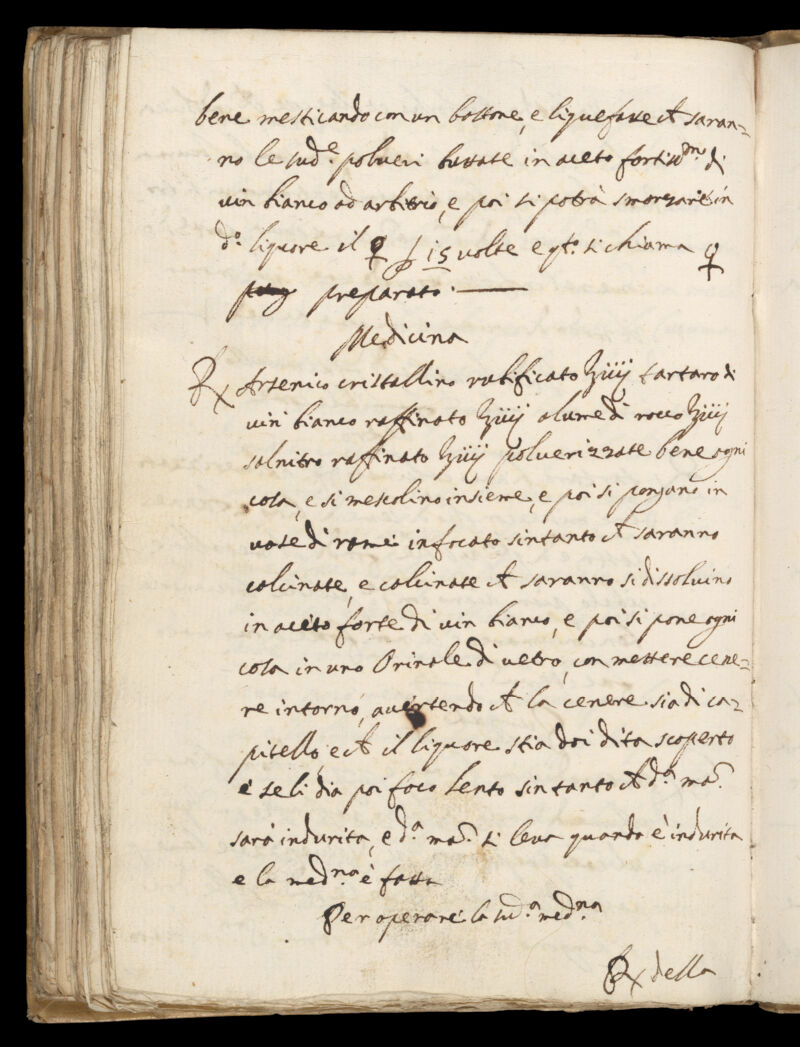 bene mesticando con un bastone, e liquefatte ch saran=
no le sud.e polveri buttate in aceto fortiss.mo di
vin bianco ad arbitrio, e poi si potrà smorzare in
d.o liquore il ♀ p 15 volte e q.to si chiama ♀
preparato.
Medicina
℞ Arsenico cristallino rubificato ℥iiij tartaro di
vin bianco raffinato ℥iiij alume di rocco ℥iiij
salnitro raffinato ℥iiij polverizzate bene ogni
cosa, e si mescolino insieme, e poi si pongano in
vase di rame infocato sintanto ch saranno
calcinate, e calcinate ch saranno si dissolvino
in aceto forte di vin bianco, e poi si pone ogni
cosa in uno Orinale di vetro, con mettere cene=
re intorno, avertendo ch la cenere sia di ca=
pitello, e ch il liquore stia doi dita scoperto
e se li dia poi foco lento sintanto ch d.a ma.
sarà indurita, e d.a ma. si leva quando è indurita
e la med.na è fatta
Per operare la sud.a med.na
℞ della